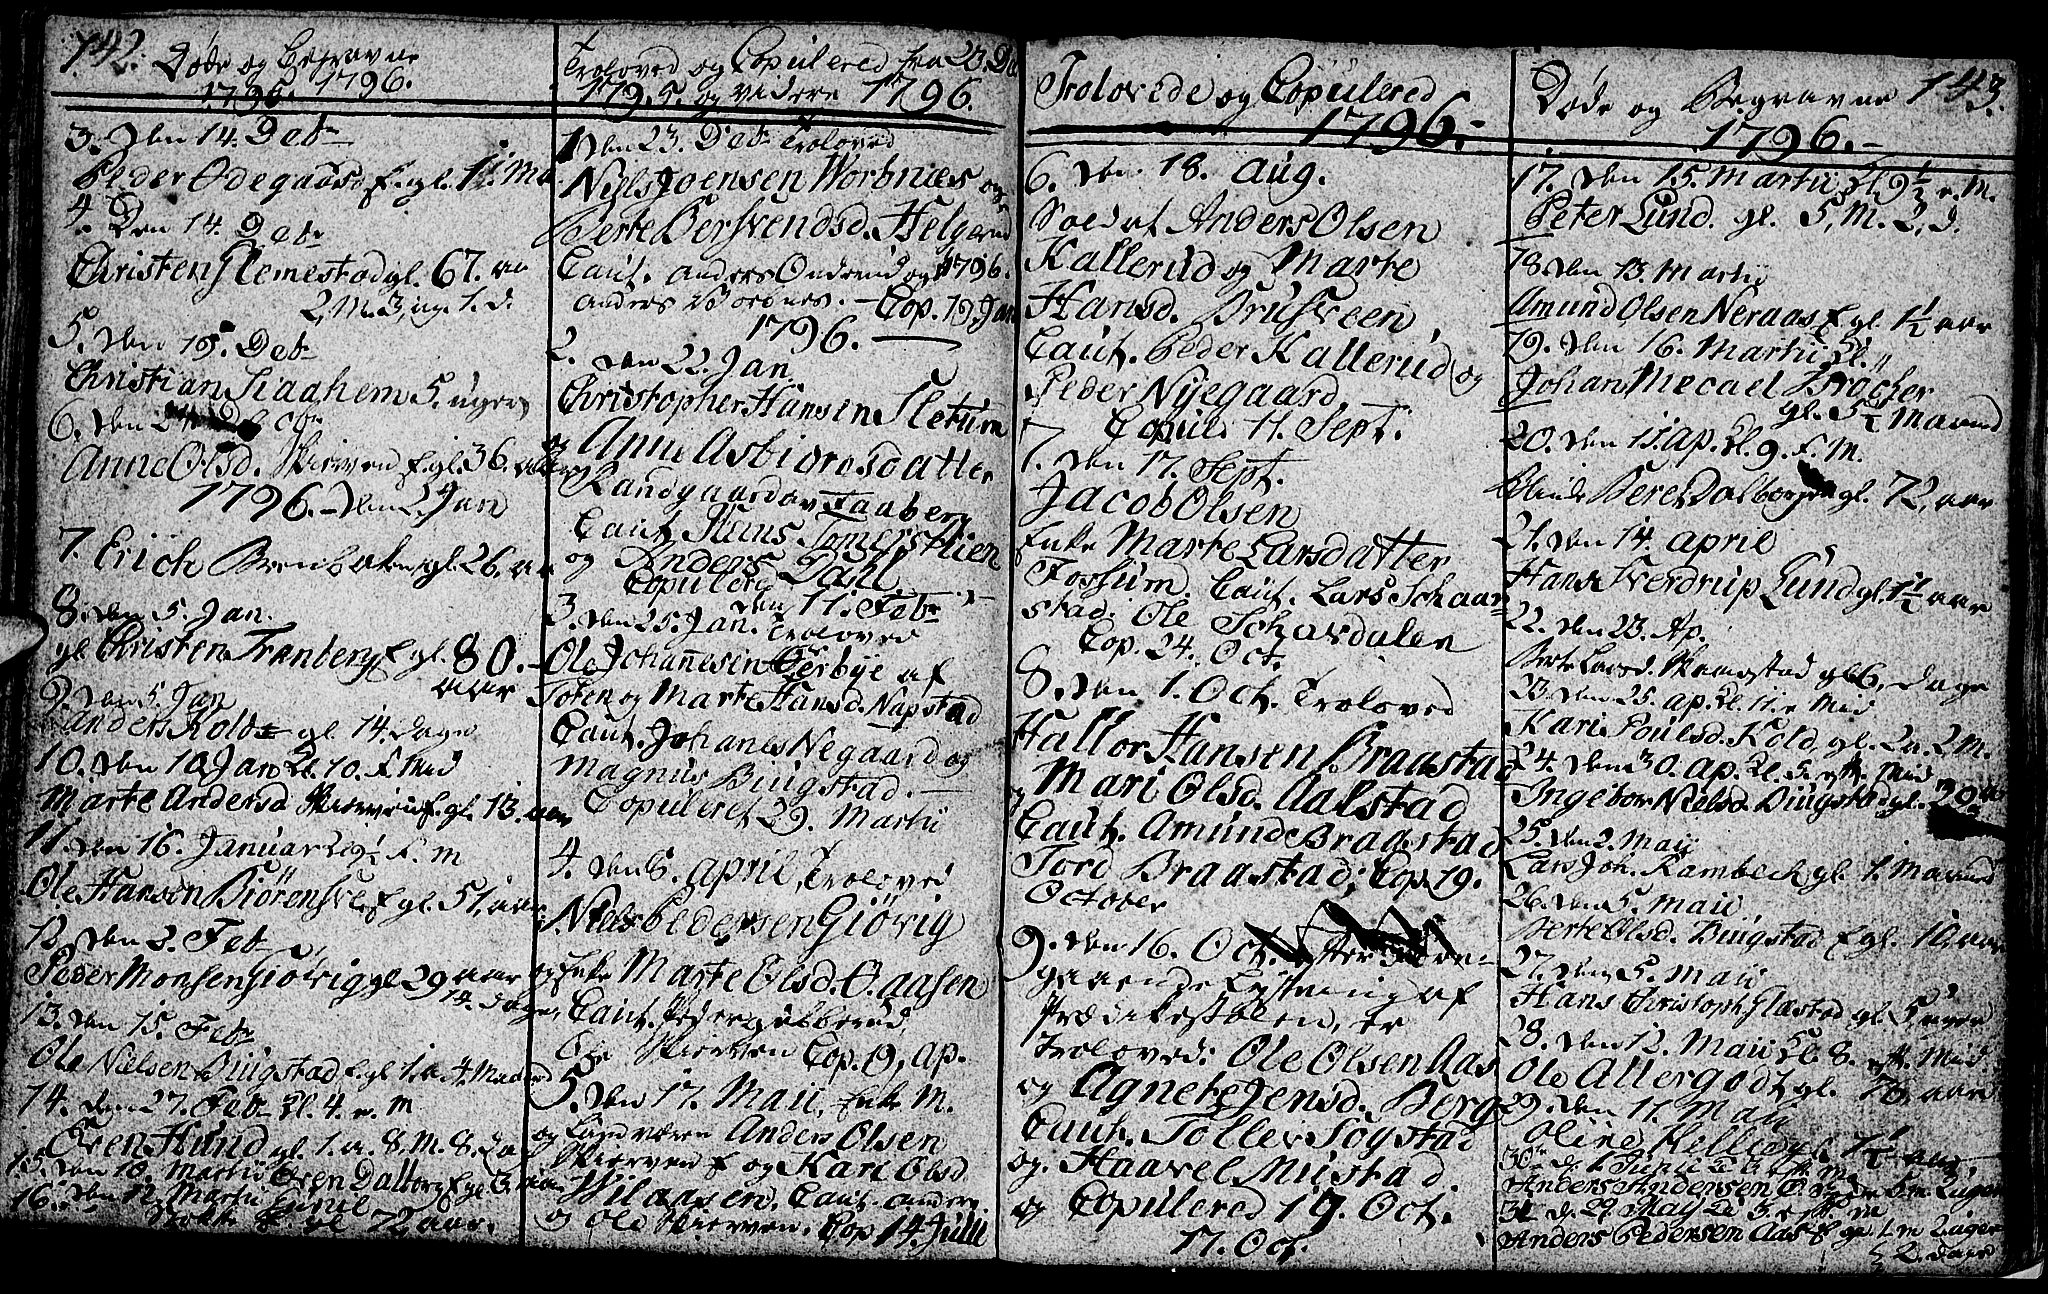 142. Døde og Begravne
1796. 1796.
3. Den 14. Debr
Peder Ødegaard f. gl. 11. Ma
4. Den 14. Debr
Christen Slemestad gl. 67. aar
2, M. 3, ug. 1. d.
5. Den 19. Debr
Christian Kaahem 5. uger
6. Den Debr
Anne Olsd. Skierven f. gl. 36. aar
1796. Den 2. Jan
7. Erich Brenbaken gl. 26. aar
8. Den 5. Jan.
gl. Christen Tranberg f. gl. 80.
aar
9. Den 5. Jan
Anders Kolb gl. 14. Dage
10. Den 10. Jan Kl. 10. F. Mid
Marte Andersd Skierven f. gl. 13. aar
11. Den 16. Januar F. m
Ole Hansen Biørensve f. gl. 51, aar
12. Den 3. Feb
Peder Monsen Giøvig gl 29 aar
14. dage
13. Den 15. Feb
Ole Nielsen Bingstad f. gl. 1. a. 4. Maaned
14. Den 27. Feb Kl. 4. e. M
Even Hund gl. 1. a. 8. M. 8. Da
15. Den 10 Martii Even Dalborg f. gl. 3. aar
16. Den 12 Martii
gl 72, aar.
Troloved og Copulered fra 23. De
1795. og videre 1796.
1 Den 23. Debr Troloved
Niels Joensen Worbnæs og
Berte Bersvendsd. Helgerud
Caut. Anders Onsrud og 1796.
Anders Borgnes. — Cop. 19. Jan
1796. —
2. Den 22. Jan
Christopher Hansen Sletum
og Anne Asbiørnsdatter
Randgaard av Faaberg
Caut. Hans Tomerstien
og Anders Dahl
Copulered Den 11. Febr
3. Den 25. Jan. Troloved
Ole Johannesen Nerbye af
Toten og Marte Hansd. Napstad
Caut. Johanes Negaard og
Magnus Bingstad. —
Copuleret 29. Martii
4. Den 6. April, Troloved
Niels Pedersen Giøvig
og Enke Marte Olsd. Ø. aasen
Caut. Peder Gubberud,
Ole Skierven Cop. 19, Ap.
5. Den 17. Maii, Enke M.
og Landværn Anders Olsen
Skierven f og Kari Olsd
Vilaasen, Caut. Anders
og Ole Skierven. Cop 14. Julii
Trolovede og Copulered
1796.
6. Den. 18. Aug.
Soldat Anders Olsen
Kallerud og Marte
Hansd. Brusveen,
Caut. Peder Kallerud og
Peder Nyegaard. —
Copul. 11. Sept.
7. Den 17. Sept.
Jacob Olsen
Enke Marte Larsdatter
Fossum. Caut. Lars Schaar-
stad. Ole Schardalen
Cop. 24. Oct.
8. Den 1. Oct. Troloved
Hallor Hansen Braastad
og Mari Olsd. Aalstad
Caut. Amund Braastad
Tord Braastad; Cop. 19.
October
9. Den 16. Oct. efter fore-
gaaende Lysning af
Prædikestolen, er
Troloved: Ole Olsen Aas
og Agnete Jensd. Berg
Caut. Toller Sogstad
og. Haavel Mustad.
og Copulered 19. Oct.
17. Oct.
Døde og Begravne 143.
1796.
17. Den 15. Martii Kl. 9 1/2 e. M.
Peter Lund. gl. 5, M. 2, d.
18. Den 13. Martii
Amund Olsen Neraas f. gl. 1 1/2 aar
19. Den 16. Martii Kl.
Johan Mecael Brocher
gl. 5 1/2 Maaned
20. Den 11. ap. Kl. 9. F. M.
Blinde Beret Dalborgen gl. 72, aar
21. Den 14. april
Hans Sverdrup Lund gl. 1 1/2 aar
22. Den 23. Ap.
Berte Larsd. Skaanstad gl 6, Dage
23. Den 25. ap. Kl. 11. e Mid
Kari Poulsd. Kold, gl. 2 a. 2 M.
24. Den 30. ap. Kl. 5. eft. Mid
Ingebor Nielsd. Bingstad gl.
25. Den 2. Maii
Lars Joh. Rambech gl. 1. Maaned
26. Den 5. Maii
Berte Olsd. Bingstad f. gl. 10 aar
27. Den 5. Maii
Hans Christoph. Glæstad gl 5, uger
28. Den 12. Maii Kl. 8. eft. Mid.
Ole Allergodt gl. 70 aar
29. Den 11. Maii
Oline Helle gl. 1 1/2 aar
30te d. 1 Junii Kl 3 eft. M
Anders Andersen gl 5 m. 2 uger
31 d. 29 May Kl 3. eft. M
Anders Pedersen Aas f gl. 1 m 2 uger
2 Dage